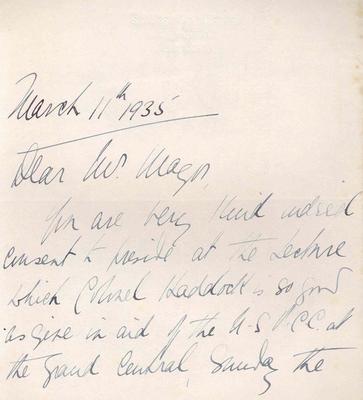 March 11th 1935
Dear Mr. Mayor,
You are very kind indeed
consent to preside at the Lecture
which Colonel Haddock is so good
as give in aid of the N.S.P.C.C. at
the Grand Central, Sunday the